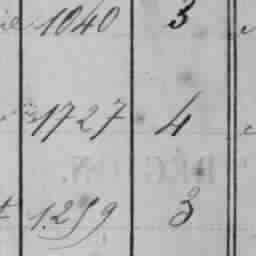 1040 3
1727 4
1259 3